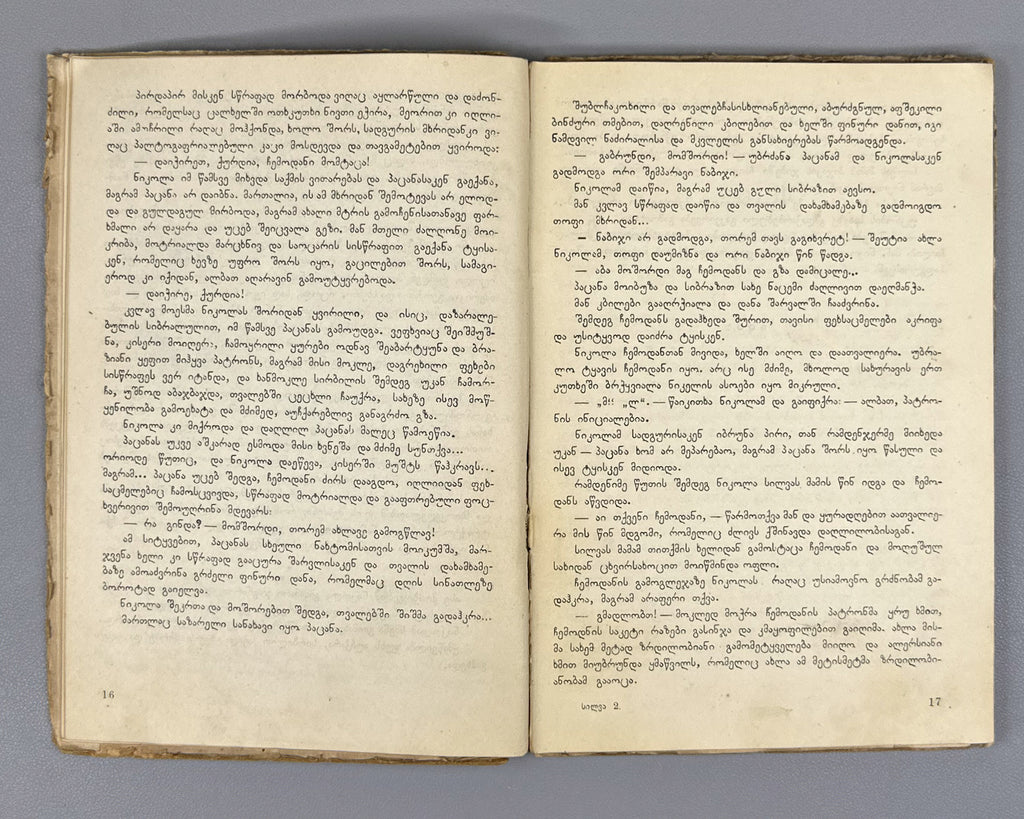 პირდაპირ მისკენ სწრაფად მორბოდა ვიღაც აყლარწული და დაძონ-
ძილი, რომელსაც ცალხელში ოთხკუთხი ნივთი ეჭირა, მეორით კი იღლი-
აში ამოჩრილი რაღაც მოჰქონდა, ხოლო შორს, სადგურის მხრიდანკი ვი-
ღაც პალტოგაფრიალებული კაცი მოსდევდა და თავგამეტებით ყვიროდა:
— დაიჭირეთ, ქურდია, ჩემოდანი მომტაცა!
ნიკოლა იმ წამსვე მიხვდა საქმის ვითარებას და პაცანასაკენ გაექანა,
მაგრამ პაცანა არ დაიბნა. მართალია, ის ამ მხრიდან შემოტევას არ ელოდ-
და და გულდაგულ მირბოდა, მაგრამ ახალი მტრის გამოჩენისათანავე ფარ-
ხმალი არ დაყარა და უცებ შეიცვალა გეზი. მან მთელი ძალღონე მოი-
კრიბა, მოტრიალდა მარცხნივ და საოცარის სისწრაფით გაექანა ტყისა-
კენ, რომელიც ხევზე უფრო შორს იყო, გაცილებით შორს, სამაგი-
ეროდ კი იქიდან, ალბათ აღარავინ გამოუტყვრებოდა.
— დაიჭირე, ქურდია!
კვლავ მოესმა ნიკოლას შორიდან ყვირილი, და ისიც, დაზარალე-
ბულის სიბრალულით, იმ წამსვე პაცანას გამოუდგა. ვეფხვიაც შეიშმუშ-
ნა, კისერი მოიღერა, ჩამოყრილი ყურები ოდნავ შეაბარტყუნა და ბრა-
ზიანი ყეფით მიჰყვა პატრონს, მაგრამ მისი მოკლე, დაგრეხილი ფეხები
სისწრაფეს ვერ იტანდა, და ხანმოკლე სირბილის შემდეგ უკან ჩამორ-
ჩა, უშნოდ აბაჯბაჯდა, თვალებში ცეცხლი ჩაუქრა, სახეზე ისევ მოწ-
ყენილობა გამოეხატა და მძიმედ, აუჩქარებლივ განაგრძო გზა.
ნიკოლა კი მიქროდა და დაღლილ პაცანას მალეც წამოეწია.
პაცანას უკვე აშკარად ესმოდა მისი ხვნეშა და მძიმე სუნთქვა...
ორიოდე წუთიც, და ნიკოლა დაეწევა, კისერში მუშტს წაჰკრავს...
მაგრამ... პაცანა უცებ შედგა, ჩემოდანი ძირს დააგდო, იღლიიდან ფეხ-
საცმელებიც ჩამოსცვივდა, სწრაფად მოტრიალდა და გააფთრებული ფოც-
ხვერივით შემოუღრინა მდევარს:
— რა გინდა? — მომშორდი, თორემ ახლავე გამოგწლავ!
ამ სიტყვებით, პაცანას სხეული ნახტომისათვის მოიკუმშა, მარ-
ჯვენა ხელი კი სწრაფად გააცურა შარვლისაკენ და თვალის დახამხამე-
ბაზე ამოაძვრინა გრძელი ფინური დანა, რომელმაც დღის სინათლეზე
ბოროტად გაიელვა.
ნიკოლა შეკრთა და მოშორებით შედგა, თვალებში შიშმა გადაჰკრა...
მართლაც საზარელი სანახავი იყო პაცანა.
16
შუბლჩაკოხილი და თვალებჩასისხლიანებული, აბურძგნულ, აფშეკილი
ბინძური თმებით, დაღრენილი კბილებით და ხელში ფინური დანით, იგი
ნამდვილ ნაძირალისა და მკვლელის განსახიერებას წარმოადგენდა.
— გაბრუნდი, მომშორდი! — უბრძანა პაცანამ და ნიკოლასაკენ
გადმოდგა ორი შემპარავი ნაბიჯი.
ნიკოლამ დაიწია, მაგრამ უცებ გული სიბრაზით აევსო.
მან კვლავ სწრაფად დაიწია და თვალის დახამხამებაზე გადმოიგდო
თოფი მხრიდან...
— ნაბიჯი არ გადმოდგა, თორემ თავს გაგიხვრეტ! — შეუტია ახლა
ნიკოლამ, თოფი დაუმიზნა და ორი ნაბიჯი წინ წადგა.
— აბა მოშორდი მაგ ჩემოდანს და გზა დამიცალე...
პაცანა მოიბუზა და სიბრაზით სახე ნაცემი ძაღლივით დაეღმანჭა.
მან კბილები გააღრჭიალა და დანა შარვალში ჩააძვრინა.
შემდეგ ჩემოდანს გადაჰხედა შურით, თავისი ფეხსაცმელები აკრიფა
და უსიტყვოდ დაიძრა ტყისკენ.
ნიკოლა ჩემოდანთან მივიდა, ხელში აიღო და დაათვალიერა. უბრა-
ლო ტყავის ჩემოდანი იყო. არც ისე მძიმე, მხოლოდ სახურავის ერთ
კუთხეში ბრჭყვიალა ნიკელის ასოები იყო მიკრული.
— „მ!! „ლ“. — წაიკითხა ნიკოლამ და გაიფიქრა: — ალბათ, პატრო-
ნის ინიციალებია.
ნიკოლამ სადგურისაკენ იბრუნა პირი, თან რამდენჯერმე მიიხედა
უკან — პაცანა ხომ არ მეპარებაო, მაგრამ პაცანა შორს იყო წასული და
ისევ ტყისკენ მიდიოდა.
რამდენიმე წუთის შემდეგ ნიკოლა სილვას მამის წინ იდგა და ჩემო-
დანს აწვდიდა.
— აი თქვენი ჩემოდანი, — წარმოთქვა მან და ყურადღებით აათვალიე-
რა მის წინ მდგომი, რომელიც ძლივს ქშინავდა დაღლილობისაგან.
სილვას მამამ თითქმის ხელიდან გამოსტაცა ჩემოდანი და მოღუშულ
სახიდან ცხვირსახოცით მოიწმინდა ოფლი.
ჩემოდანის გამოგლეჯაზე ნიკოლას რაღაც უსიამოვნო გრძნობამ გა-
დაჰკრა, მაგრამ არაფერი თქვა.
— გმადლობთ! — მოკლედ მოჭრა ჩემოდანის პატრონმა ყრუ ხმით,
ჩემოდნის საკეტი რაზები გასინჯა და კმაყოფილებით გაიღიმა. ახლა მის-
მა სახემ მეტად ზრდილობიანი გამომეტყველება მიიღო და ალერსიანი
ხმით მიუბრუნდა ყმაწვილს, რომელიც ახლა ამ მეტისმეტმა ზრდილობი-
ანობამ გააოცა.
სილვა 2.
17